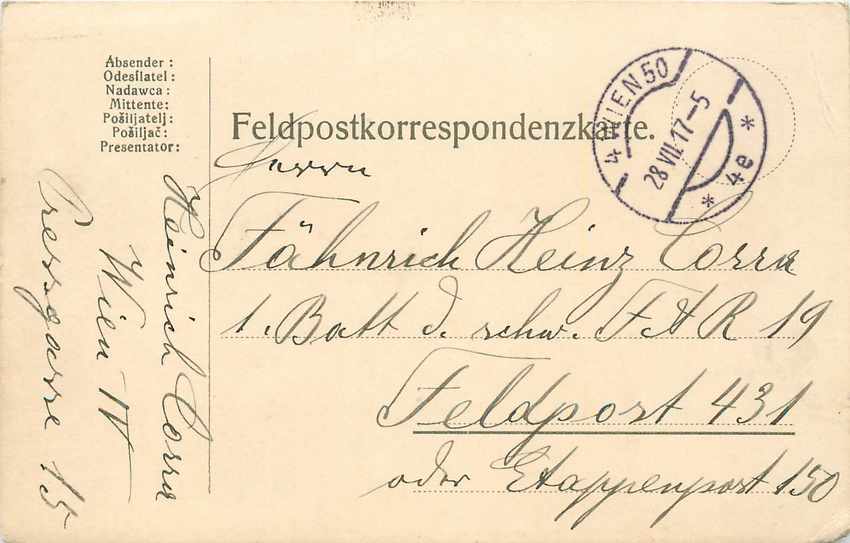 Absender:
Odesílatel:
Nadawca:
Mittente:
Pošiljatelj:
Pošiljač:
Presentator:
Feldpostkorrespondenzkarte.
4 WIEN 50
28 VII. 17-5
* 4e *
Herrn
Fähnrich Heinz Corra
1. Batt d. schw. F A R 19
Feldpost 431
oder Etappenpost 150
Heinrich Corra
Wien IV
Pressgasse 15